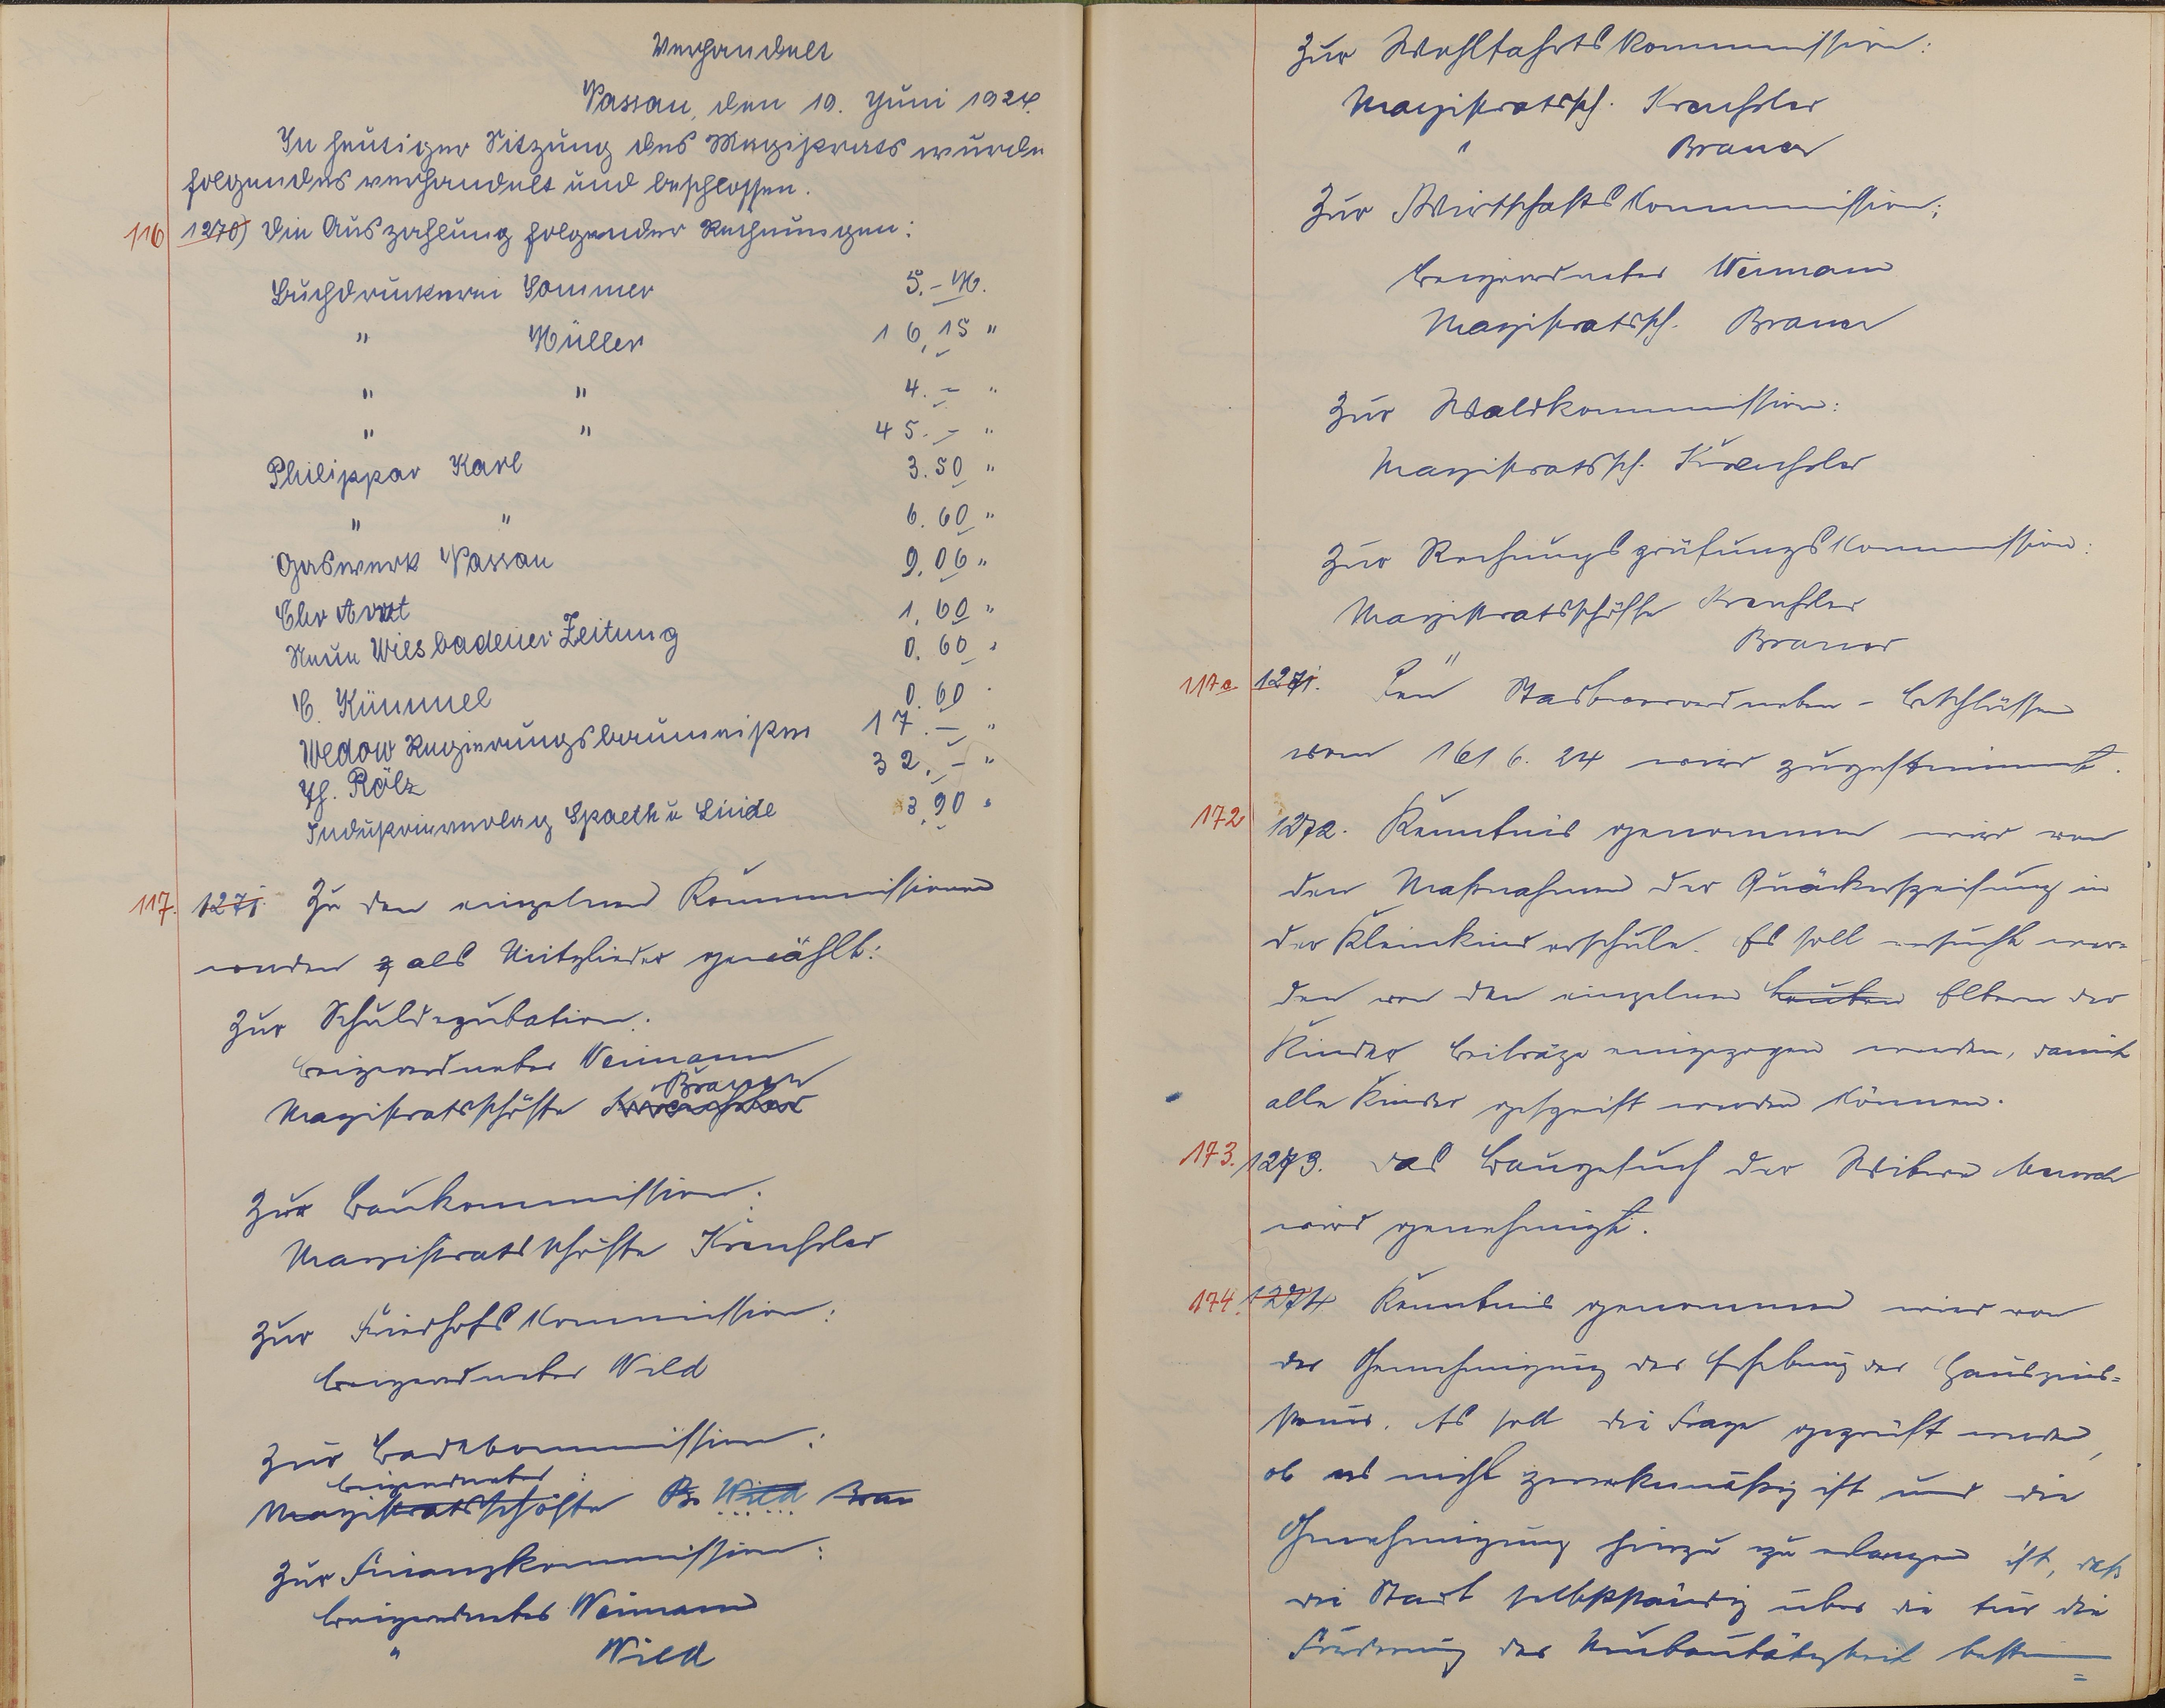 Verhandelt
Nassau, den 19. Juni 1924.
In heutiger Sitzung des Magistrats wurde
folgendes verhandelt und beschlossen.
116 1270) Die Auszahlung folgender Rechnungen:
Buchdruckerei Sommer 5.- M.
" Müller 16,15 "
" " 4.- "
" " 45.- "
Philippar Karl 3.50 "
" " 6.60 "
Gaswerk Nassau 9,06 "
Chr Arzt 1,60 "
Neue Wiesbadener Zeitung 0.60 "
C. Kümmel 0.60 "
Wedow Regierungsbaumeister 17.- "
Th. Rölz 32.- "
Industrieverlag Spaeth u Linde 3,90 "
117. 1271 Zu den einzelnen Kommissionen
wurden als Mitglieder gewählt:
Zur Schuldeputation:
Beigeordneter Weimann
Brauer
Magistratsschöffe
Zur Baukommission:
Magistratsschöffe Kreuhsler
Zur Friedhofskommission:
Beigeordneter Wild
Zur Badekommission:
Beigeordneter :
Magistratsschöffe Br Wild Brau
Zur Finanzkommission:
Beigeordneter Weimann
" Wild
Zur Wohlfahrtskommission:
Magistratssch. Kreuhsler
" Brauer
Zur Wirtschaftskommission:
Beigeordneter Weimann
Magistratssch. Brauer
Zur Waldkommission:
Magistratssch. Kreuhsler
Zur Rechnungsprüfungskommission:
Magistratsschöffe Kreuhsler
" Brauer
117a 1271. Den Stadtverordneten-Beschlüssen
vom 16/6. 24 wird zugestimmt.
172 1272. Kenntnis genommen wird von
den Maßnahmen der Quäkerspeisung in
der Kleinkinderschule. Es soll versucht wer=
den von den einzelnen Leuten Eltern der
Kinder Beiträge eingezogen werden, damit
alle Kinder gespeist werden können.
173. 1273. Das Baugesuch der Witwe
wird genehmigt.
174. 1274 Kenntnis genommen wird von
der Genehmigung der Erhebung der Hauszins=
steuer. Es soll die Frage geprüft werden,
ob es nicht zweckmäßig ist und die
Genehmigung hierzu zu erlangen ist, daß
die Stadt selbstständig über die für die
Förderung der Neubautätigkeit bestimm=